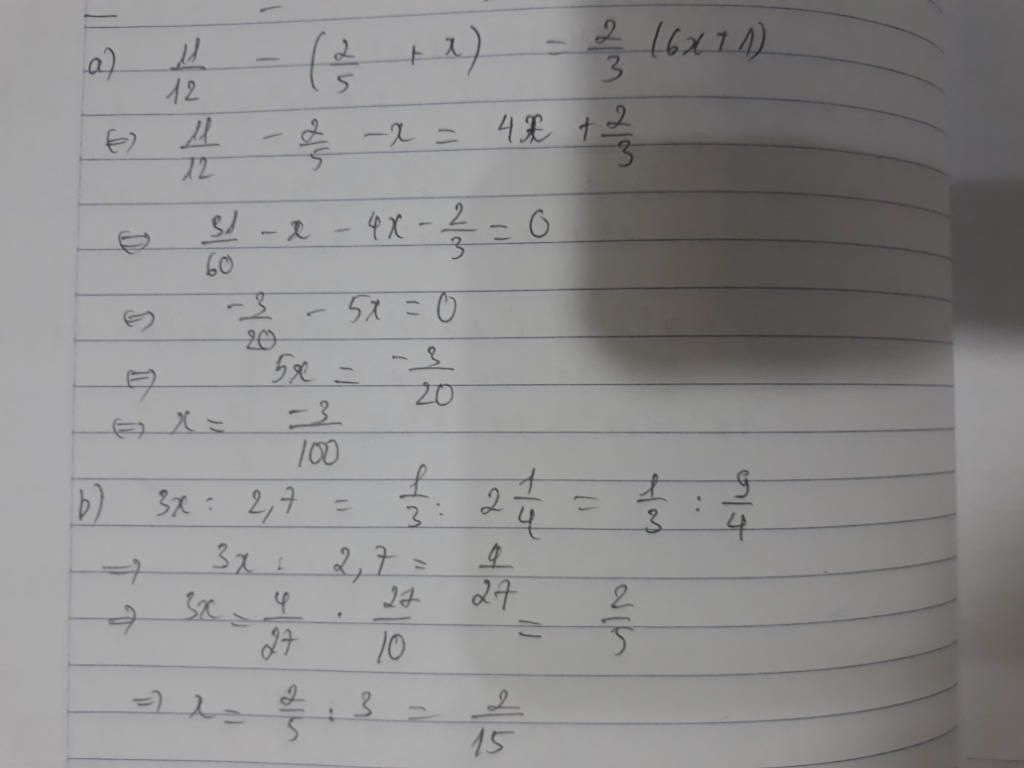 a) 11/12 - (2/5 + x) = 2/3 (6x+1)
⇔ 11/12 - 2/5 - x = 4x + 2/3
⇔ 31/60 - x - 4x - 2/3 = 0
⇔ -3/20 - 5x = 0
⇔ 5x = -3/20
⇔ x = -3/100
b) 3x : 2,7 = 1/3 : 2 1/4 = 1/3 : 9/4
⇒ 3x : 2,7 = 4/27
⇒ 3x = 4/27 . 27/10 = 2/5
⇒ x = 2/5 : 3 = 2/15